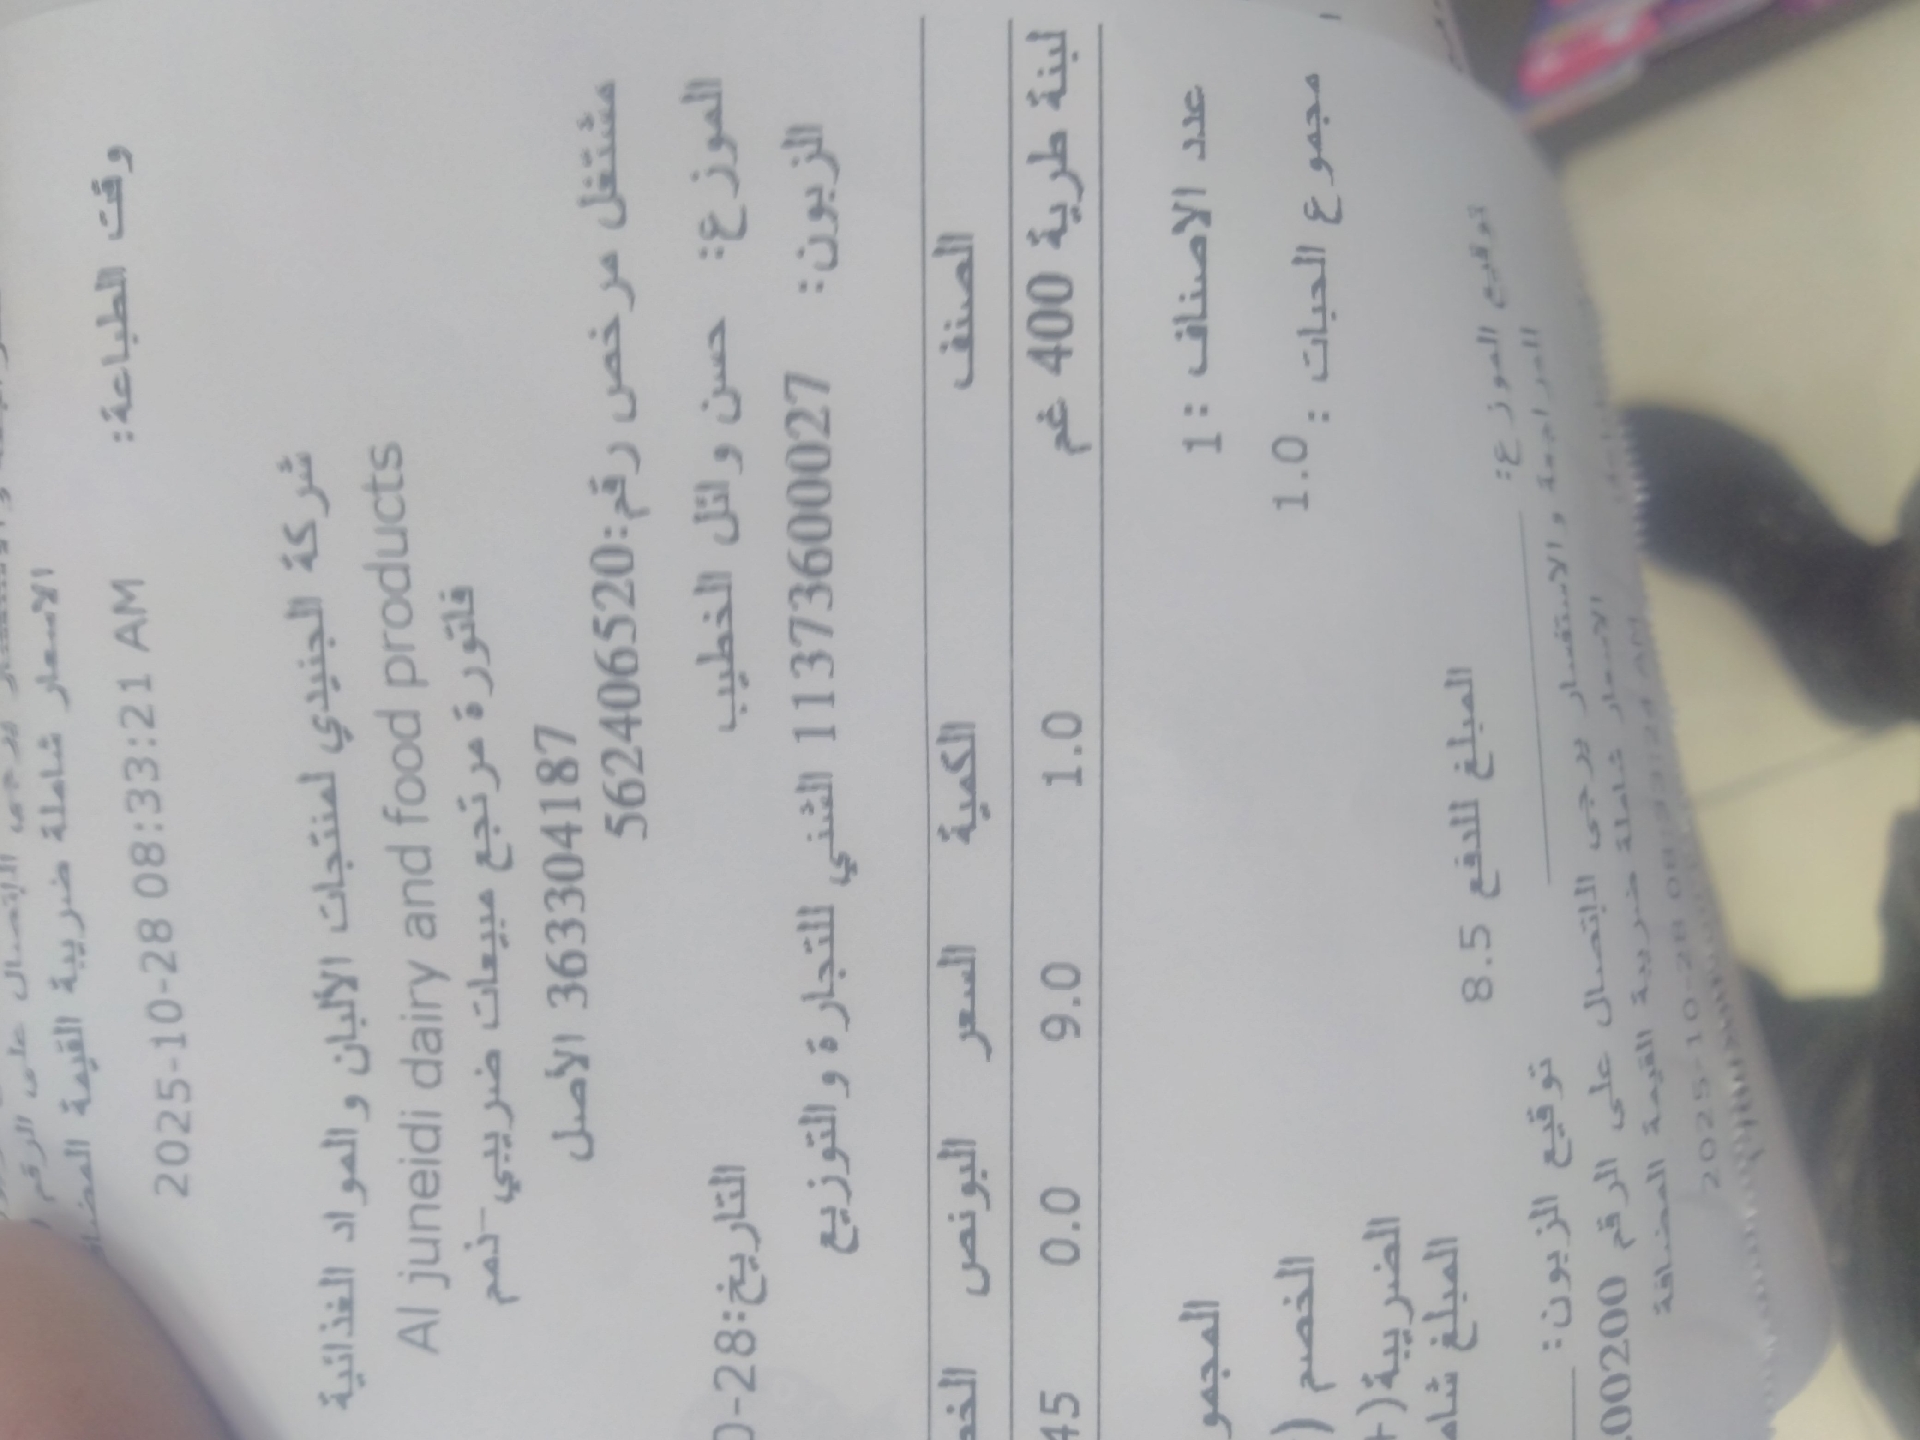 الاسعار شاملة ضريبة القيمة
وقت الطباعة:
2025-10-28 08:33:21 AM
شركة الجنيدي لمنتجات الألبان والمواد الغذائية
Al juneidi dairy and food products
فاتورة مرتجع مبيعات ضريبي-ذمم
363304187 الأصل
مشتغل مرخص رقم:562406520
الموزع: حسن وائل الخطيب
التاريخ:28-0
الزبون: 11373600027 الشني للتجارة والتوزيع
الصنف الكمية السعر البونص الخص
لبنة طرية 400 غم 1.0 9.0 0.0 45
عدد الاصناف :1 المجمو
مجموع الحبات : 1.0 الخصم (
الضريبة(+
المبلغ للدفع 8.5 المبلغ شام
توقيع الموزع: توقيع الزبون:
للمراجعة والاستفسار يرجى الإتصال على الرقم 00200.
الاسعار شاملة ضريبة القيمة المضافة
2025-10-28